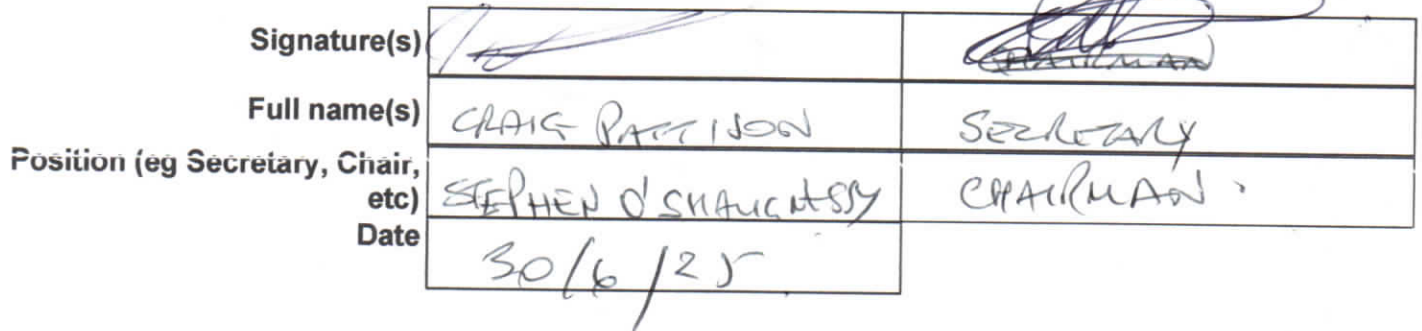 Signature(s) CHAIRMAN
Full name(s) CRAIG PATTISON SECRETARY
Position (eg Secretary, Chair,
etc) STEPHEN O'SHAUGNESSY CHAIRMAN.
Date
30/6/25